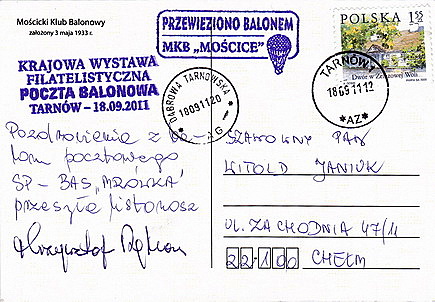 Mościcki Klub Balonowy
założony 3 maja 1933 r.
PRZEWIEZIONO BALONEM
MKB „MOŚCICE"
KRAJOWA WYSTAWA
FILATELISTYCZNA
POCZTA BALONOWA
TARNÓW – 18.09.2011
DĄBROWA TARNOWSKA
18091120
AG
POLSKA 1 55 ZŁ
Dwór w Żelazowej Woli
TARNÓW 1
18091112
*AZ*
Pozdrowienia z
lotu pocztowego
SP-BAS „MRÓWKA"
przesyła listonosz
Krzysztof
SZANOWNY PAN
WITOLD JANIUK
UL. ZACHODNIA 47/11
22-100 CHEŁM